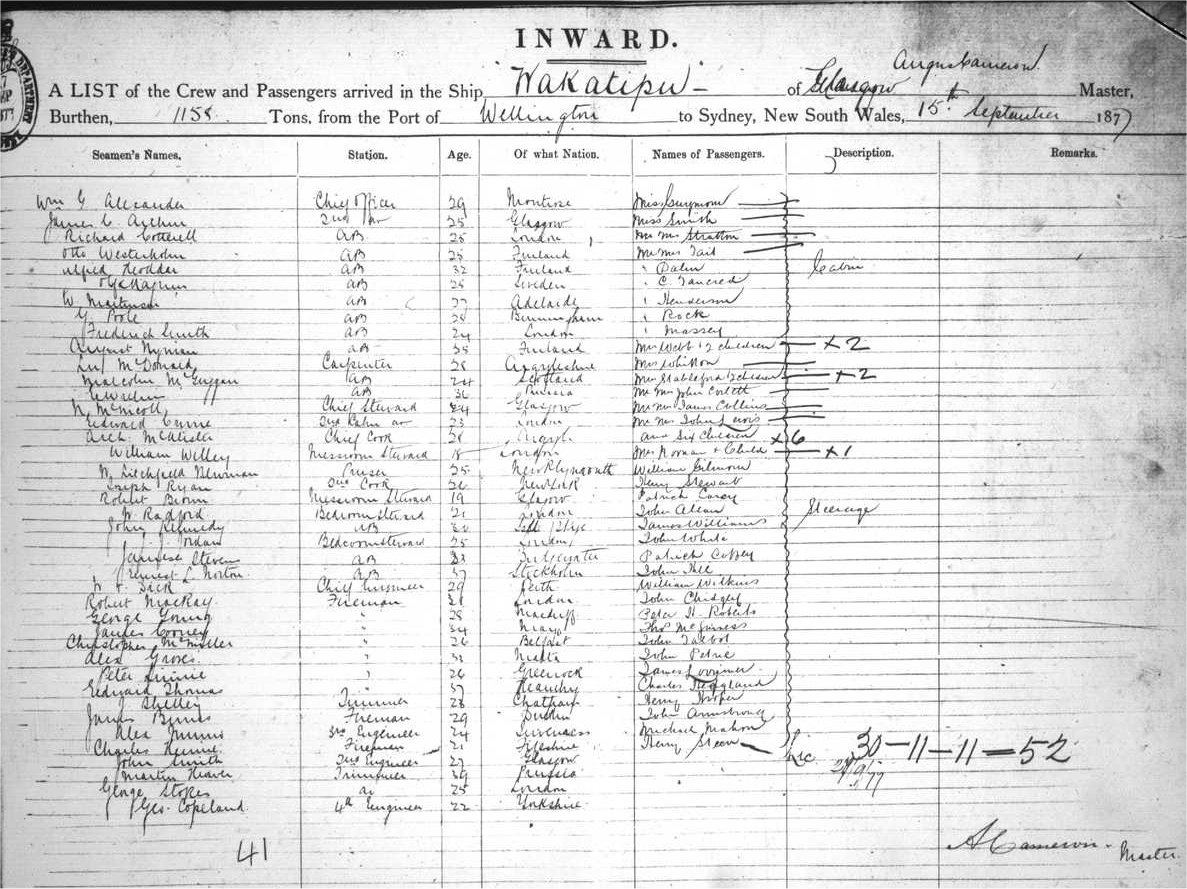 INWARD.
Angus Cameron
A LIST of the Crew and Passengers arrived in the Ship "Wakatipu" of Glasgow Master,
Burthen, 1158 Tons, from the Port of Wellington to Sydney, New South Wales, 15th September 1877
Seamen's Names. Station. Age. Of what Nation. Names of Passengers. Description. Remarks.
Wm G Alexander Chief Officer 29 Montrose Miss
James C Arthur 2nd Do 25 Glasgow Miss Smith
Richard Cotterell AB 25 London Mr Mrs Stratton
Otto Westerholm AB 25 Finland Mr Mrs Tait
Alfred AB 32 Finland " Cabin
AB 25 Sweden " C Tancred
W AB Adelaide " Henderson
G Poole AB 28 Birmingham " Rock
Frederick Smith AB 24 London " Massey
August Nyman AB 35 Finland Mrs Webb & 2 children x 2
McDonald Carpenter 28 Argyleshire Mrs
Malcolm AB 24 Scotland Mrs 2 children x 2
AB 36 Russia Mr Mrs John Corlett
N. McNicoll Chief Steward Glasgow Mr Mrs James Collins
Edward 2nd Cabin do 23 London Mr Mrs John Lewis
Arch. McAlister Chief Cook 28 Argyle and Six Children x 6
William Willey Messroom Steward 18 London Mrs Norman & Child x 1
W Litchfield Newman Purser 25 New Plymouth William Gilmour
Joseph Ryan 2nd Cook 26 New York Henry Stewart
Robert Brown Messroom Steward 19 Glasgow Patrick Carey
W Radford Bedroom Steward 21 London John Allan Steerage
John Kennedy AB James Williams
J Jordan Bedroom Steward 25 London John White
Steven AB 33 Bridgewater Patrick Coffey
Ernest L Norton AB 37 Stockholm John Hill
W J Dick Chief Engineer 29 Perith William Wilkins
Robert MacKay Fireman London John Chidgey
George Young " 28 Macduff Peter H. Roberts
James Cooney " 34 Mayo Thos McGuiness
Christopher McMiller " 26 Belfast John Talbot
Alex Groves " 31 Malta John Petrie
Peter " 26 Greenock James Lorrimer
Edward Thomas " 37 Charles
J Shelley Trimmer 28 Chatham Henry Hooper
James Byrnes Fireman 29 Dublin John Armstrong
Alex 3rd Engineer 24 Inverness Michael Mahon
Charles Fireman 21 Fifeshire Henry
John Smith 2nd Engineer 27 Glasgow 30-11-11=52
Martin Trimmer 39 Prussia
George Stokes do 25 London
Geo. Copeland 4th Engineer 22 Yorkshire
41
A Cameron. Master.